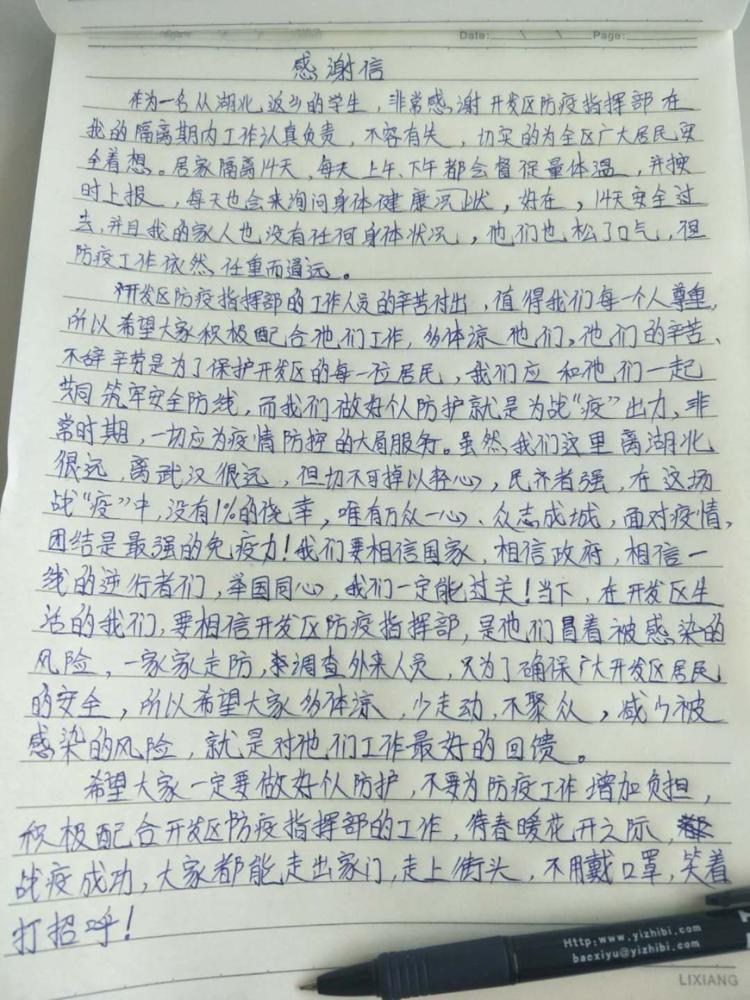 Date: \ \ Page:
感谢信
作为一名从湖北返乡的学生，非常感谢开发区防疫指挥部在
我的隔离期内工作认真负责，不容有失，切实的为全区广大居民安
全着想。居家隔离14天，每天上午、下午都会督促量体温，并按
时上报，每天也会来询问身体健康况状，好在，14天安全过
去，并且我的家人也没有任何身体状况，他们也松了口气，但
防疫工作依然任重而道远。
开发区防疫指挥部的工作人员的辛苦付出，值得我们每一个人尊重，
所以希望大家积极配合他们工作，多体凉他们，他们的辛苦、
不辞辛劳是为了保护开发区的每一位居民，我们应和他们一起
共同筑牢安全防线，而我们做好个人防护就是为战“疫”出力，非
常时期，一切应为疫情防控的大局服务。虽然，我们这里离湖北
很远，离武汉很远，但切不可掉以轻心，民齐者强，在这场
战“疫”中，没有1%的侥幸，唯有万众一心、众志成城，面对疫情，
团结是最强的免疫力！我们要相信国家，相信政府，相信一
线的逆行者们，举国同心，我们一定能过关！当下，在开发区生
活的我们，要相信开发区防疫指挥部，是他们冒着被感染的
风险，一家家走防，调查外来人员，只为了确保广大开发区居民
的安全，所以希望大家多体凉，少走动，不聚众，减少被
感染的风险，就是对他们工作最好的回馈。
希望大家一定要做好个人防护，不要为防疫工作增加负担，
积极配合开发区防疫指挥部的工作，待春暖花开之际，
战疫成功，大家都能走出家门，走上街头，不用戴口罩，笑着
打招呼！
Http:www.yizhibi.com
baoxiyu@yizhibi.com
LIXIANG